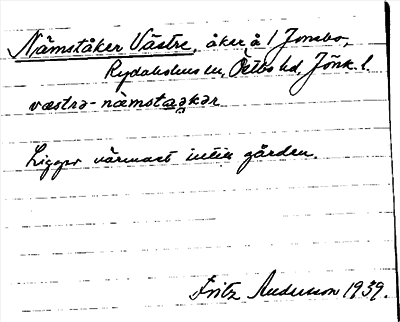 Nämståker Västre, åker å 1 Jonsbo,
Rydaholms sn, Östbo hd, Jönk. l.
væstrə- næmstaakər
Ligger närmast intill gården.
Fritz Andersson 1939.